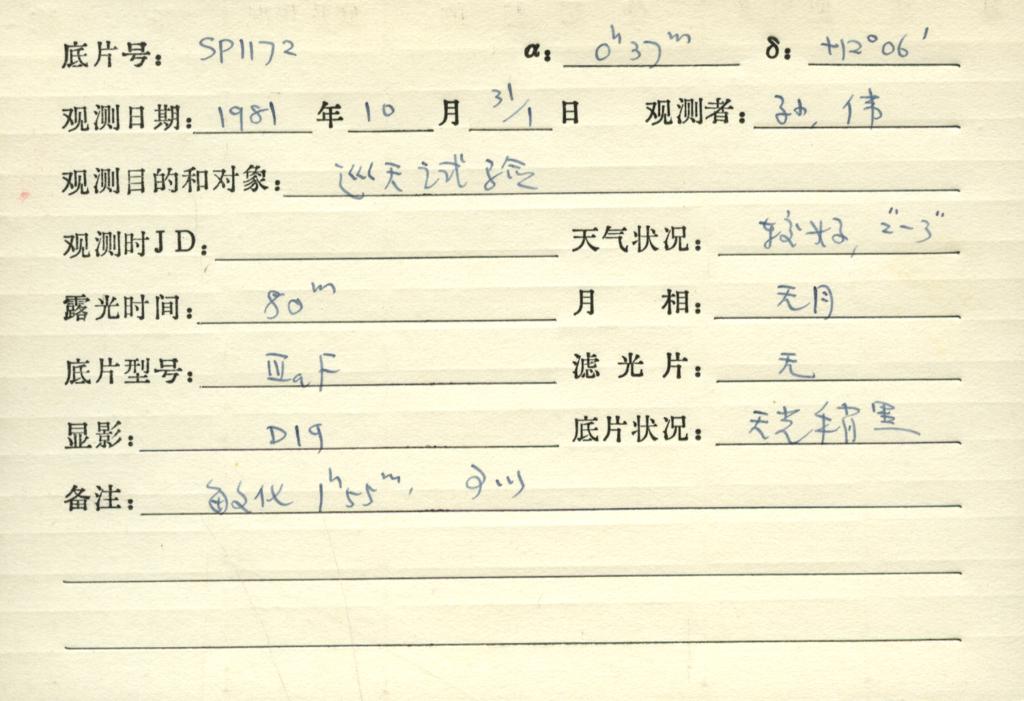 底片号: SP1172 α: 0ʰ37ᵐ δ: +12°06′
观测日期: 1981 年 10 月 31/1 日 观测者: 孙, 伟
观测目的和对象: 巡天试验
观测时JD: 天气状况: 较好, 2″-3″
露光时间: 80ᵐ 月 相: 无月
底片型号: ⅢaF 滤光片: 无
显影: D19 底片状况: 天光稍黑
备注: 敏化 1ʰ55ᵐ,